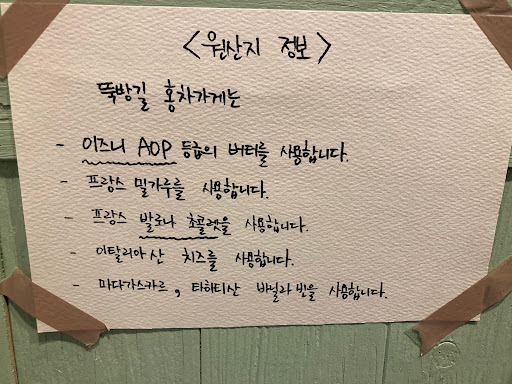 <원산지 정보>
뚝방길 홍차가게는
- 이즈니 AOP 등급의 버터를 사용합니다.
- 프랑스 밀가루를 사용합니다.
- 프랑스 발로나 초콜렛을 사용합니다.
- 이탈리아산 치즈를 사용합니다.
- 마다가스카르, 타히티산 바닐라빈을 사용합니다.